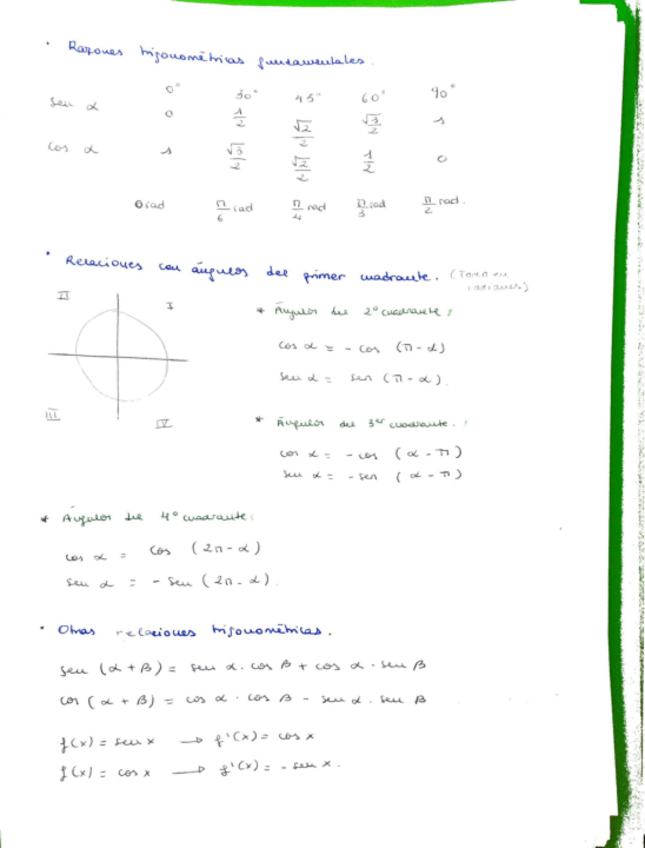 · Razones trigonométricas fundamentales.
0° 30° 45° 60° 90°
sen α 0 1/2 √2/2 √3/2 1
cos α 1 √3/2 √2/2 1/2 0
0 rad π/6 rad π/4 rad π/3 rad π/2 rad.
· Relaciones con ángulos del primer cuadrante. (Todo en radianes)
II I
III IV
* Ángulos del 2º cuadrante:
cos α = - cos (π - α)
sen α = sen (π - α).
* Ángulos del 3er cuadrante:
cos α = - cos (α - π)
sen α = - sen (α - π)
* Ángulos del 4º cuadrante:
cos α = cos (2π - α)
sen α = - sen (2π - α).
· Otras relaciones trigonométricas.
sen (α + β) = sen α · cos β + cos α · sen β
cos (α + β) = cos α · cos β - sen α · sen β
f(x) = sen x → f'(x) = cos x
f(x) = cos x → f'(x) = - sen x.